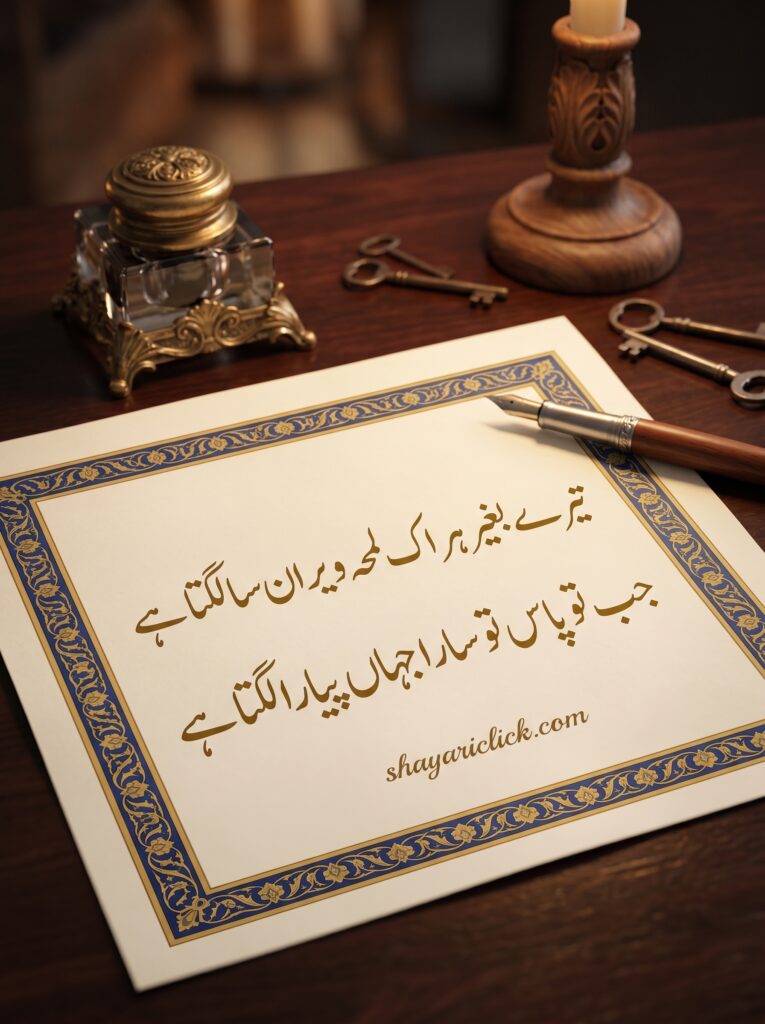 تیرے بغیر ہر اک لمحہ ویران سا لگتا ہے
جب تو پاس تو سارا جہاں پیارا لگتا ہے
shayariclick.com